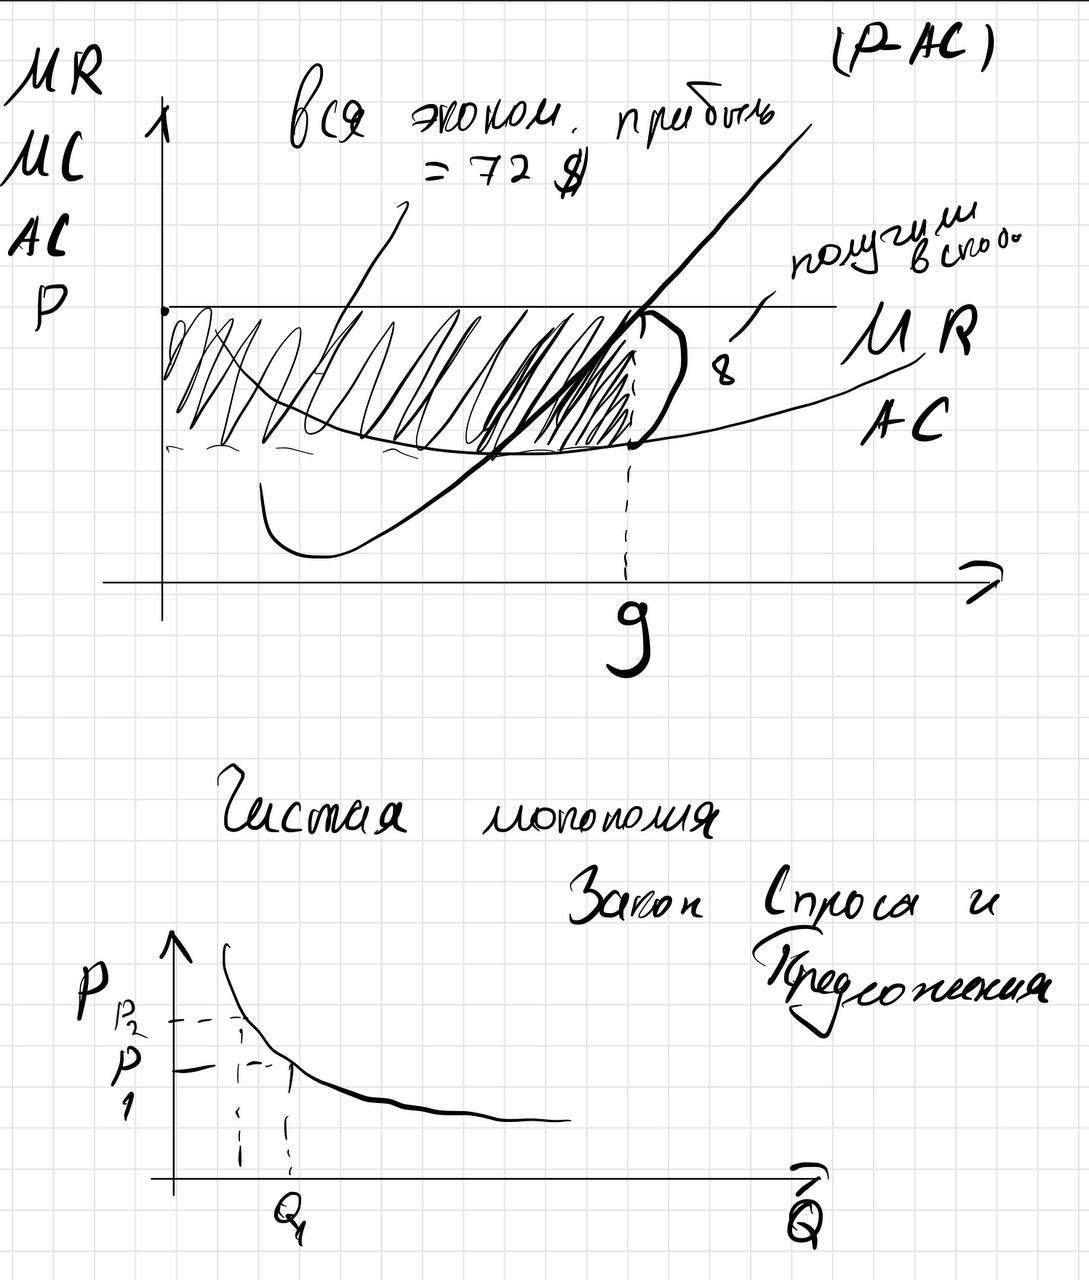 (P-AC)
MR
MC
AC
P
вся эконом. прибыль
= 72 $
получили
8
MR
AC
9
Чистая монополия
Закон Спроса и
Предложения
P
P2
P
1
Q1
Q